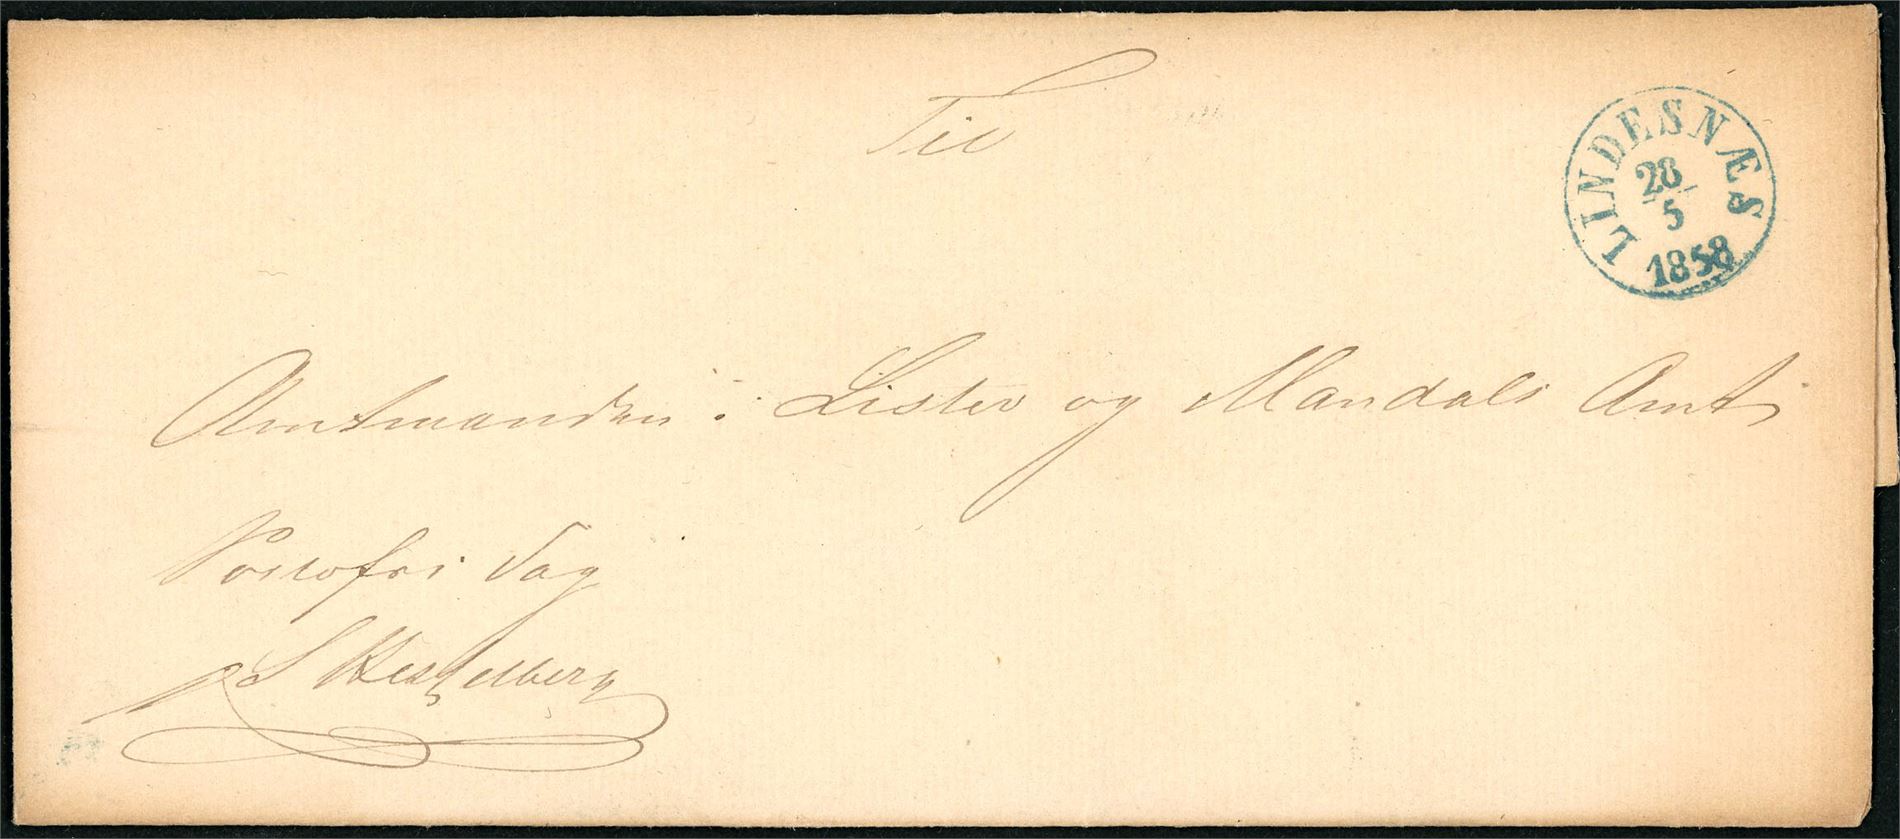 Til
LINDESNÆS
28/5
1858
Amtmanden i Lister og Mandals Amt
Postofri Sag
S Hesselberg